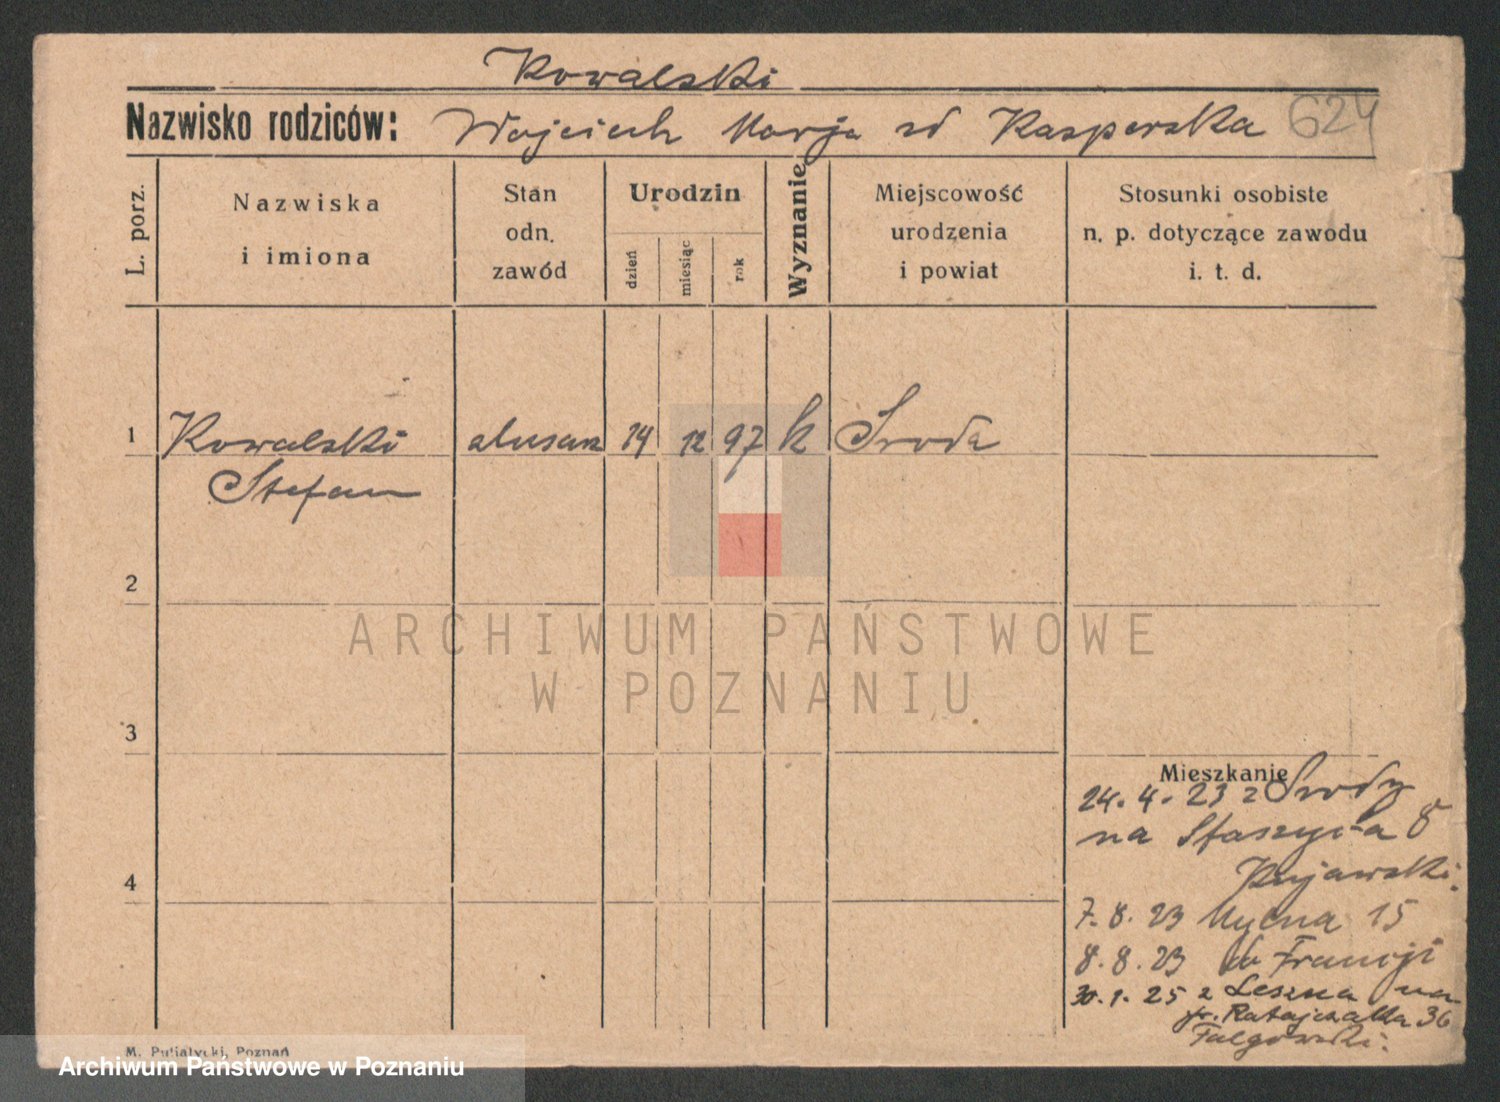 Kowalski
Nazwisko rodziców: Wojciech Marja zd Kasperska 624
L. porz.
Nazwiska
i imiona
Stan
odn.
zawód
Urodzin
dzień
miesiąc
rok
Wyznanie
Miejscowość
urodzenia
i powiat
Stosunki osobiste
n. p. dotyczące zawodu
i. t. d.
1 Kowalski ślusarz 14 12 97 k Środa
Stefan
2
ARCHIWUM PAŃSTWOWE
W POZNANIU
3
Mieszkanie
24. 4. 23 z Środy
na Staszyca 8
Kujawski.
4
7. 8. 23 Mycna 15
8. 8. 23 do Francji
30. 1. 25 z Leszna na
fr. Ratajczaka 36
M. Putiatycki, Poznań
Archiwum Państwowe w Poznaniu